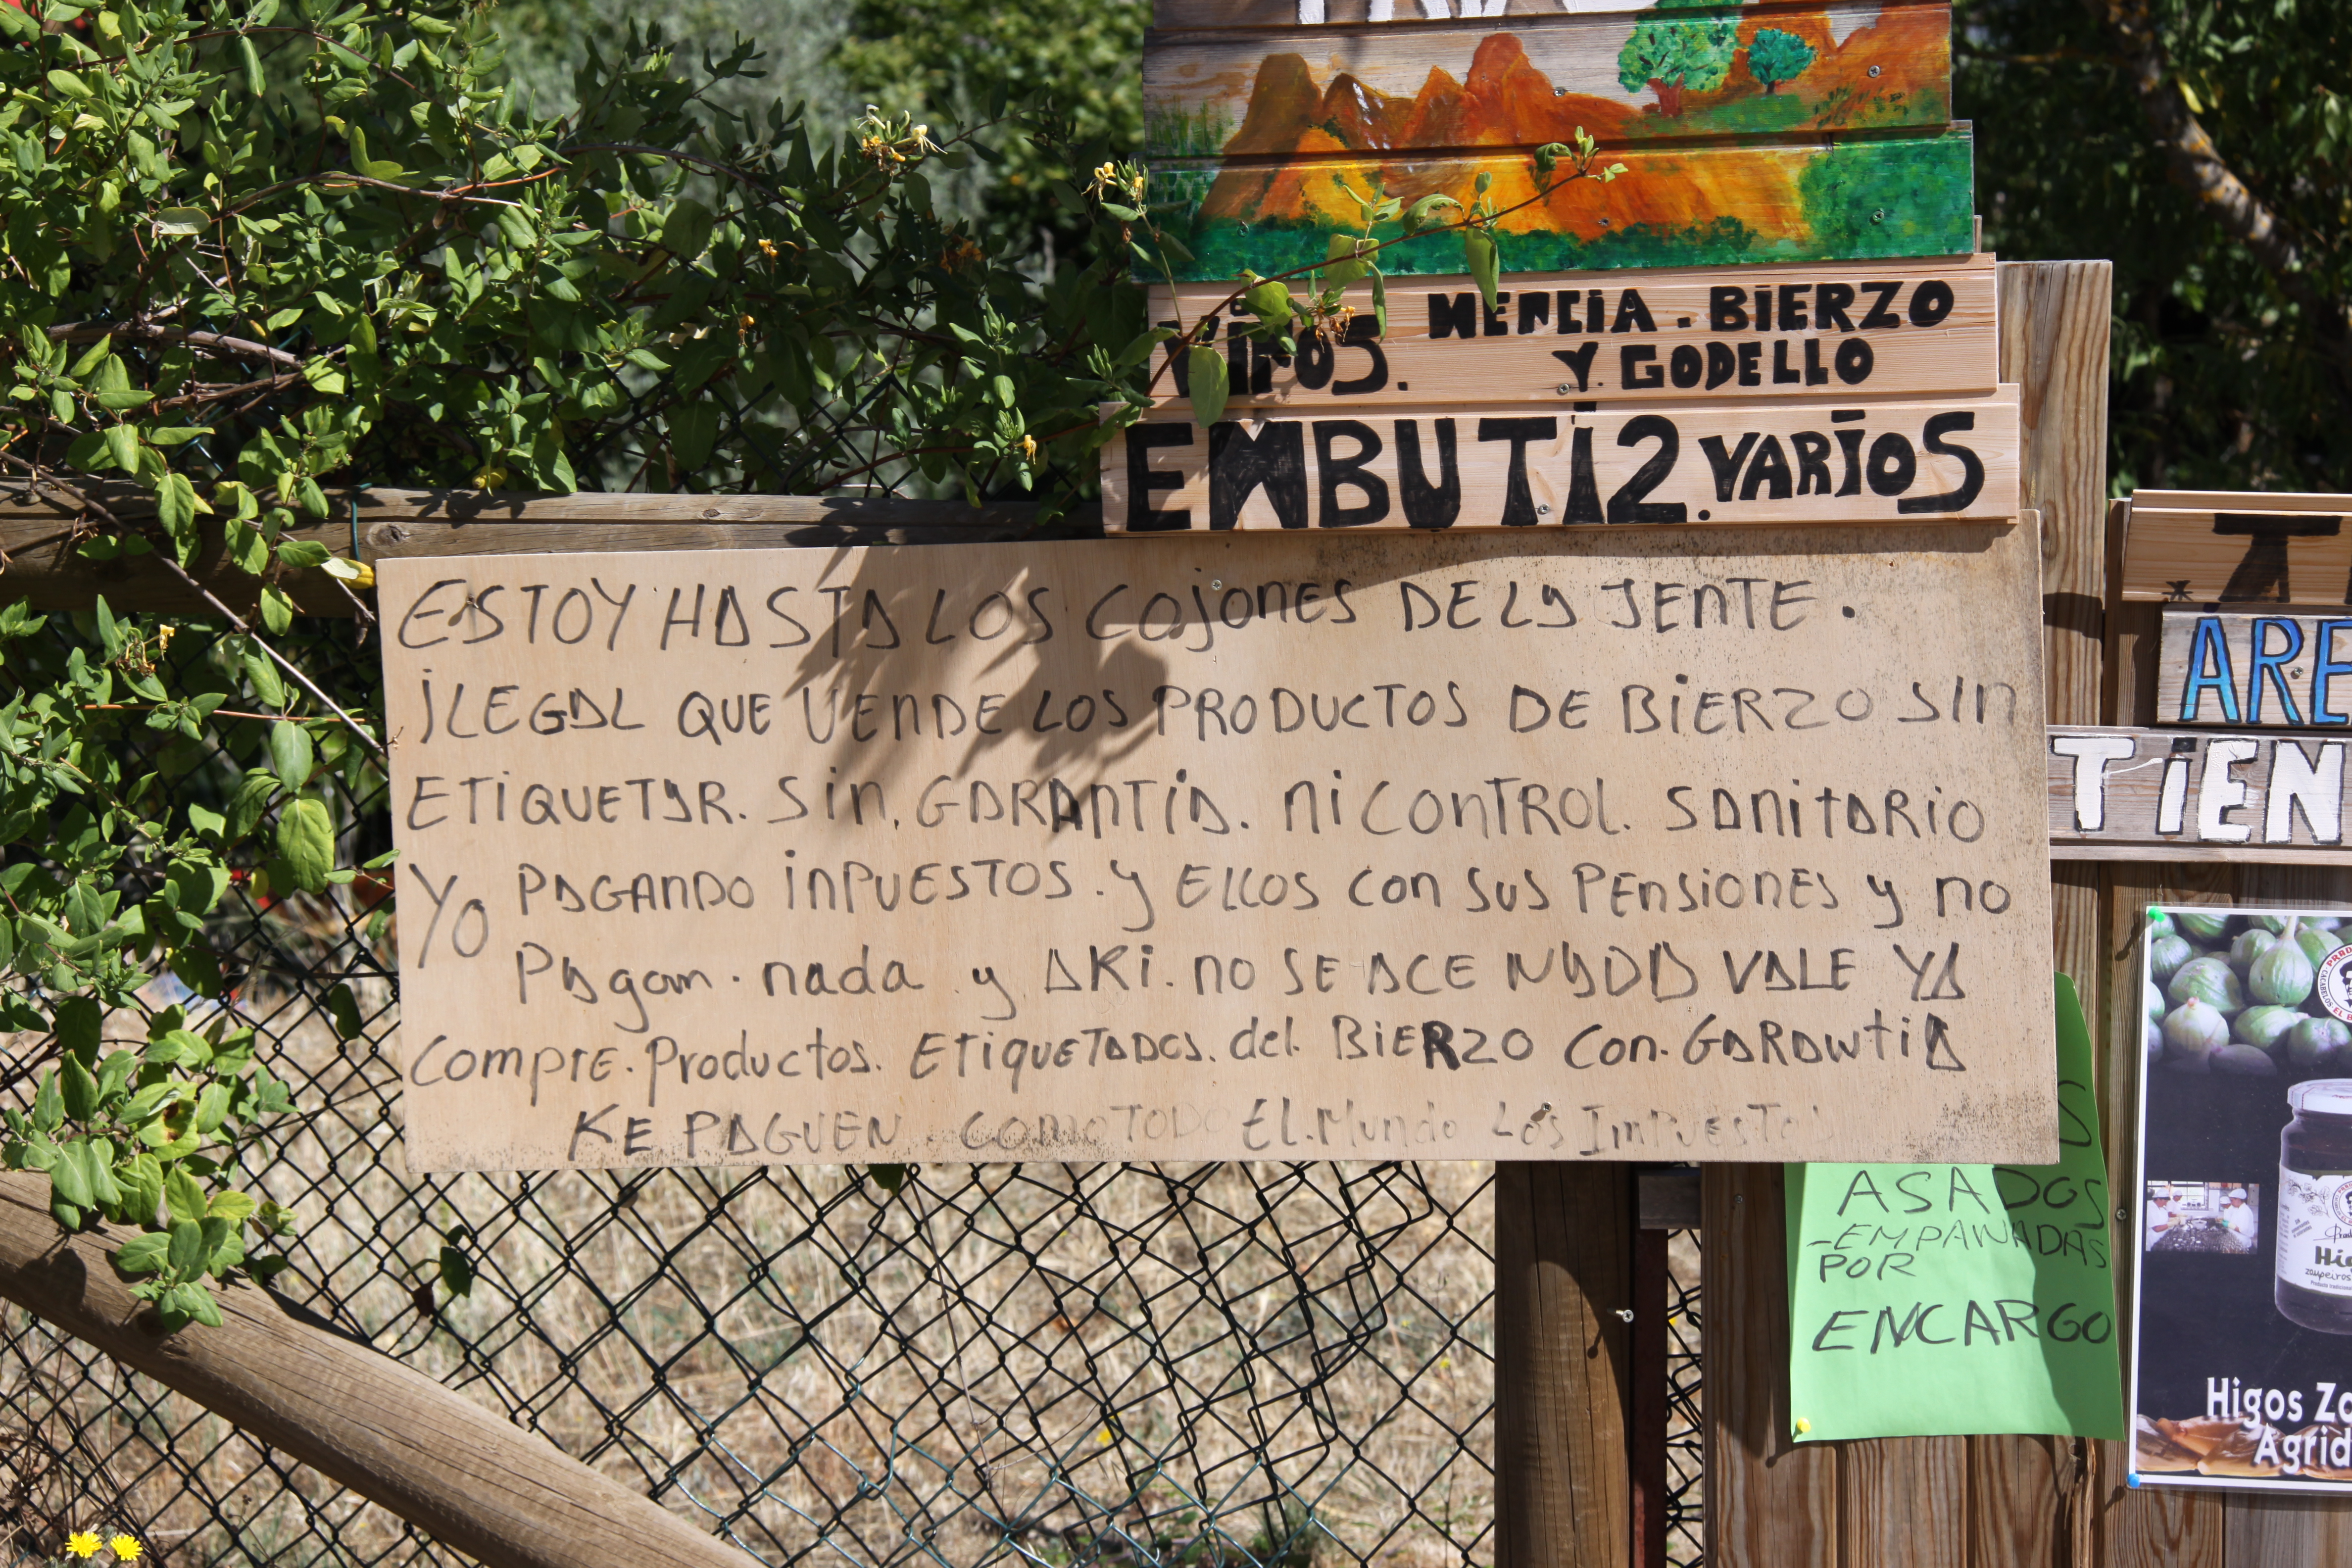 VINOS. MENCIA. BIERZO
Y. GODELLO
EMBUTI2. VARIOS
ESTOY HASTA LOS COJONES DE LA JENTE.
ILEGAL QUE VENDE LOS PRODUCTOS DE BIERZO SIN
ETIQUETAR. SIN. GARANTIA. NI CONTROL. SANITARIO
YO PAGANDO INPUESTOS. Y ELLOS CON SUS PENSIONES Y NO
PAgam. nada y AKI. NO SE ACE NADA VALE YA
COMPRE. Productos. ETIQUETADOS. del. BIERZO CON. GARAWTIA
KE PAGUEN. COMO TODO EL. MUNDO LOS IMPUESTOS
ARE
TIEN
ASADOS
-EMPANADAS
POR
ENCARGO
Higos Zo
Agrid